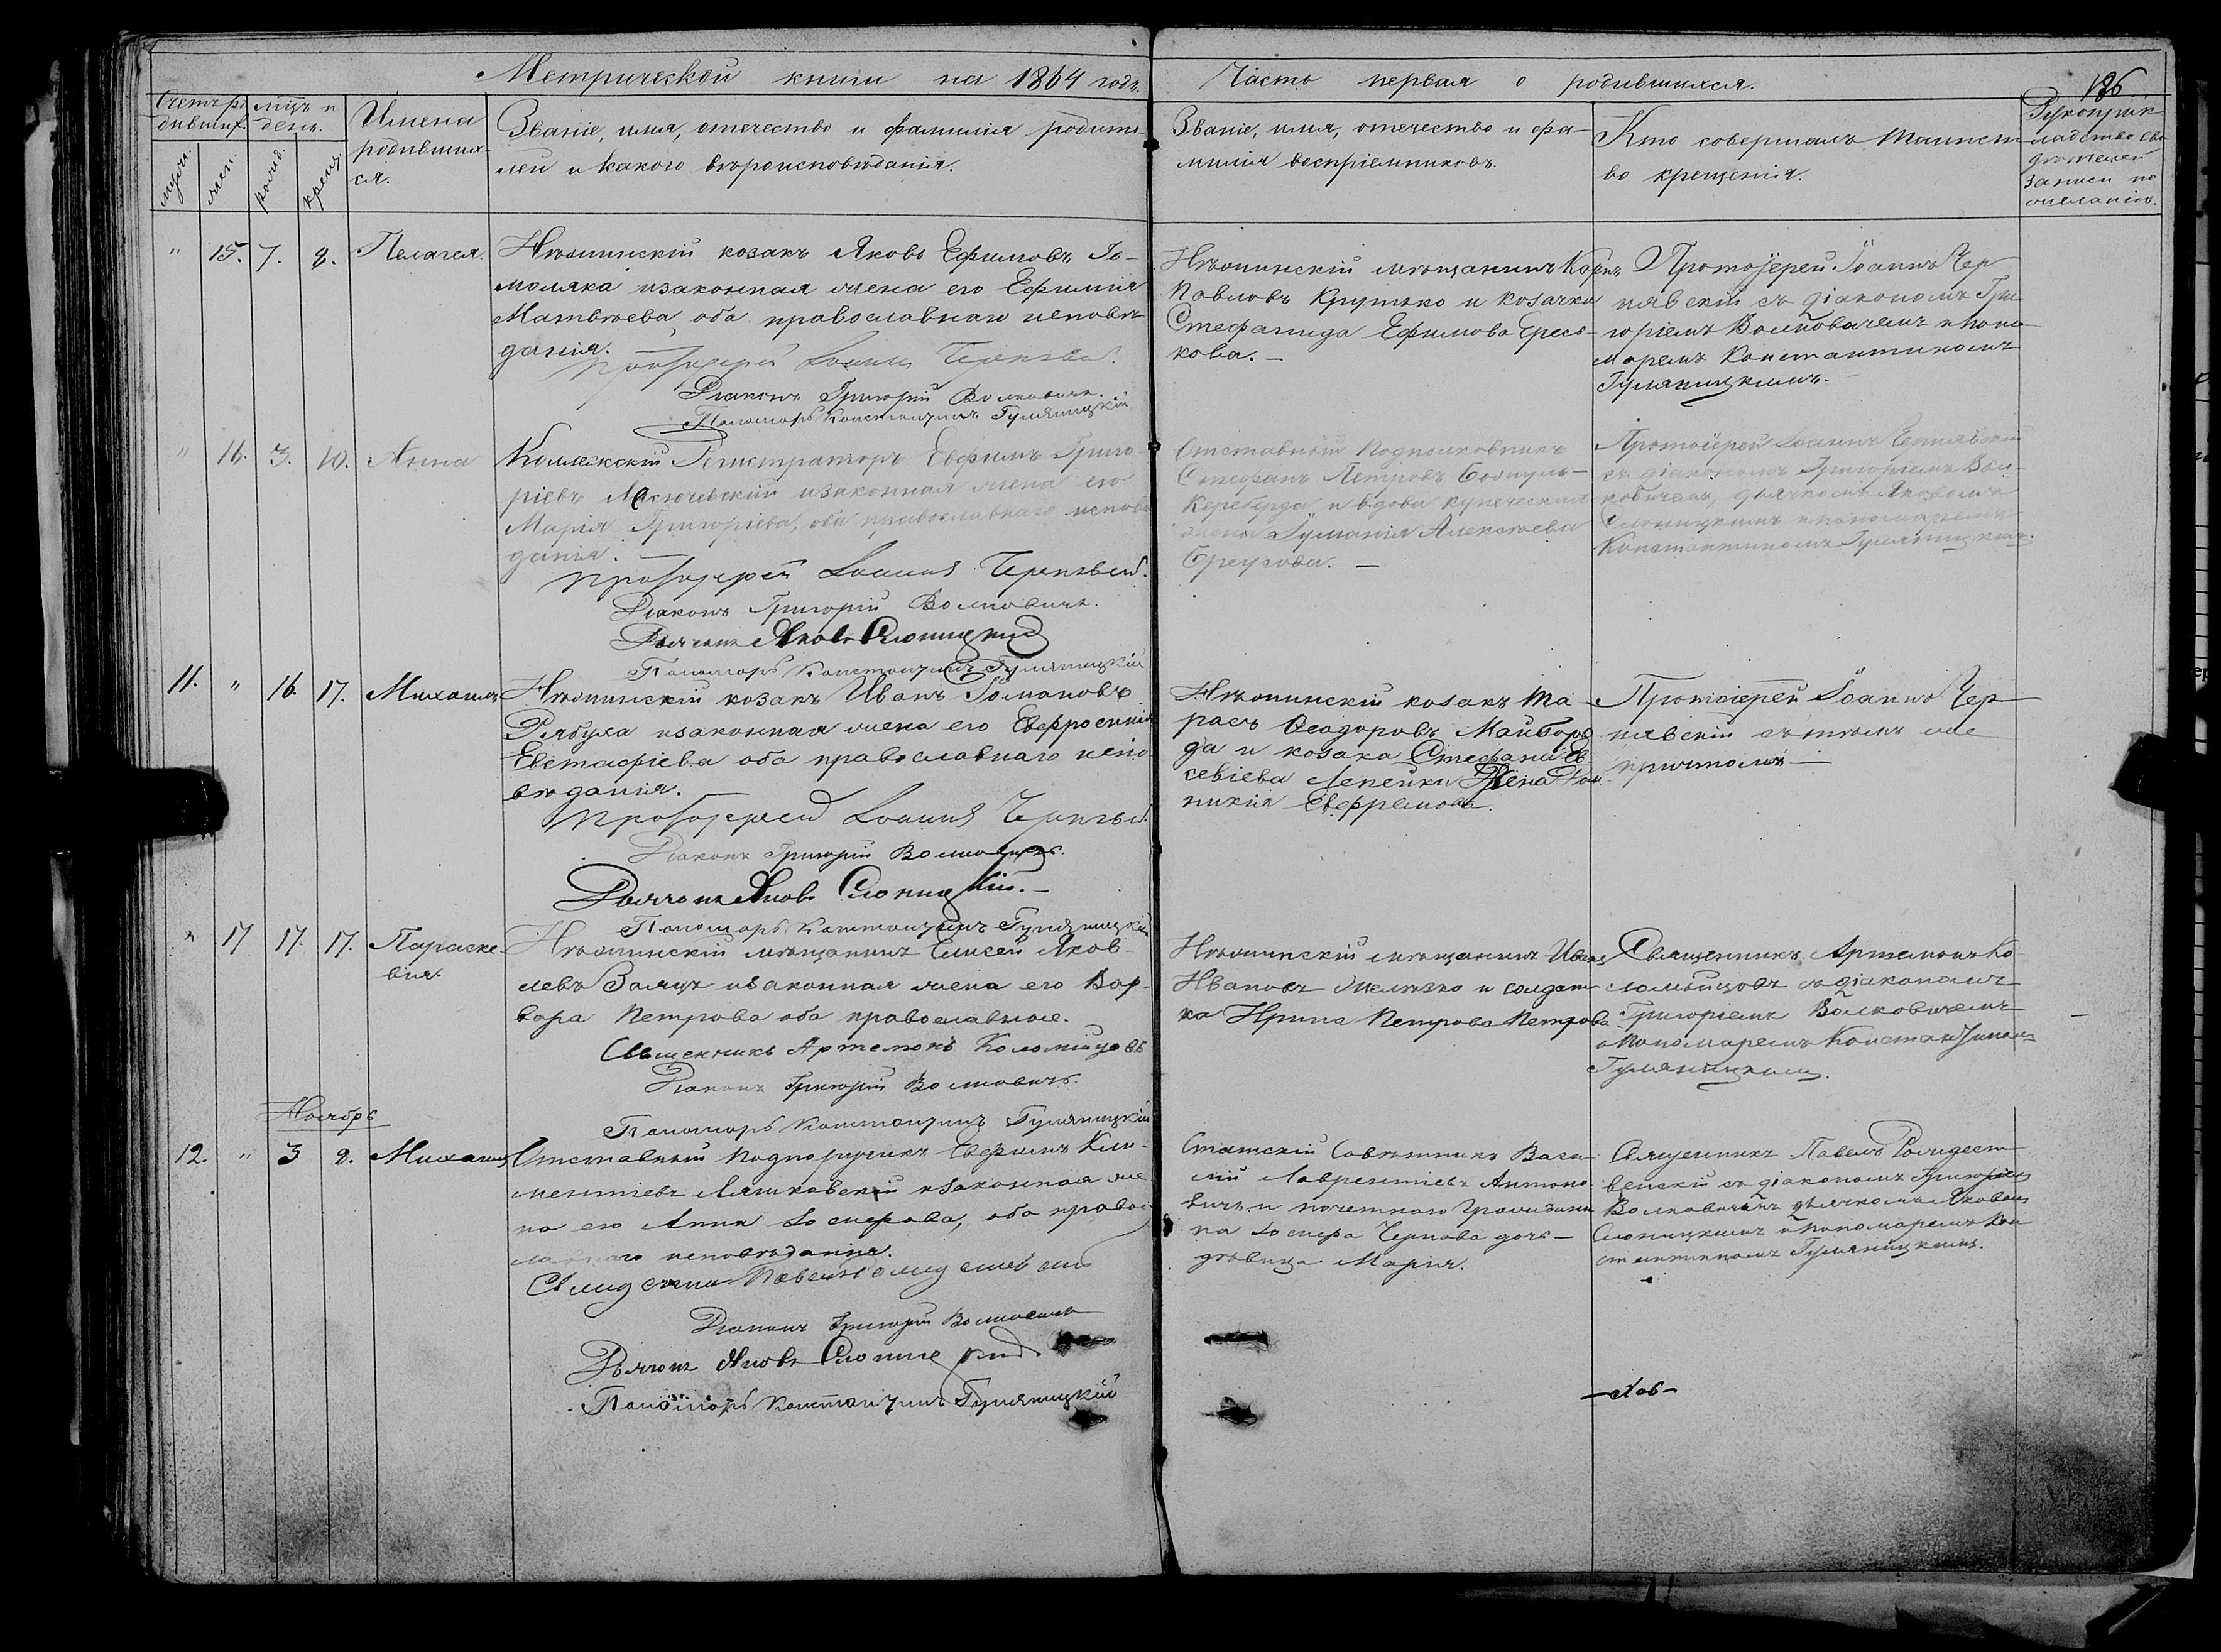 Метрической книги на 1864 годъ.
Часть первая о родившихся.
126
Счетъ ро
дившихъ.
мѣць и
день.
Имена
родивших-
ся.
муж.
жен.
рожд.
крещ.
Званіе, имя, отечество и фамилія родите
лей и какого вѣроисповѣданія.
Званіе, имя, отечество и фа-
милія воспріемниковъ.
Кто совершалъ таинст
во крещенія.
Рукоприк
ладство сви
дѣтелей
записи по
желанію.
" 15. 7. 8. Пелагея.
Нѣжинскій козакъ Яковъ Ефимовъ Го-
моляка изаконная жена его Ефимія
Матвѣева, оба православнаго исповѣ
данія.
Протоіерей Іоаннъ Чернявскій.
Діаконъ Григорій Волковичъ.
Пономарь Константинъ Гумяницкій
Нѣжинскій мѣщанинъ Карпъ
Павловъ Крутько и козачка
Стефанида Ефимова Ересь-
кова. —
Протоіерей Іоаннъ Чер
нявскій съ діакономъ Гри
горіемъ Волковичемъ и поно
маремъ Константиномъ
Гумяницкимъ.
" 16. 3. 10. Анна
Коллежскій Регистраторъ Евфимъ Григо-
ріевъ изаконная жена его
Марія Григоріева, оба православнаго исповѣ
данія.
Протоіерей Іоаннъ Чернявскій.
Діаконъ Григорій Волковичъ.
Дьячокъ Яковъ Слоницкій
Пономарь Константинъ Гумяницкій
Отставный Подполковникъ
Стефанъ Петровъ
и вдова купеческая
жена Іуліанія Алексѣева
Протоіерей Іоаннъ Чернявскій
съ діакономъ Григоріемъ Вол-
ковичемъ, дьячкомъ Яковомъ
Слоницкимъ и пономаремъ
Константиномъ Гумяницкимъ.
11. " 16. 17. Михаилъ
Нѣжинскій козакъ Иванъ Романовъ
Рябуха изаконная жена его Евфросинія
Евстафіева оба православнаго испо
вѣданія.
Протоіерей Іоаннъ Чернявскій.
Діаконъ Григорій Волковичъ.
Дьячокъ Яковъ Слоницкій. —
Пономарь Константинъ Гумяницкій
Нѣжинскій козакъ Та-
расъ Ѳеодоровъ Майборо
да и козака
севіева Лепейки жена
Евфремова.
Протоіерей Іоаннъ Чер
нявскій съ тѣмъ же
причтомъ —
" 17 17. 17. Параске-
вія.
Нѣжинскій мѣщанинъ Елисей Яков-
левъ Заяцъ изаконная жена его Вар-
вара Петрова оба православные.
Священникъ Артемонъ Коломійцовъ
Діаконъ Григорій Волковичъ.
Пономарь Константинъ Гумяницкій
Нѣжинскій мѣщанинъ Иванъ
Ивановъ и солдат-
ка Ирина Петрова Петрова
Священникъ Артемонъ Ко-
ломійцовъ съ діакономъ
Григоріемъ Волковичемъ
и пономаремъ Константиномъ
Гумяницкимъ.
Ноябрь
12. " 3 8. Михаилъ
Отставный Подпоручикъ Евфимъ Кли-
ментіевъ Ляшковскій изаконная же
на его Анна Іосифова, оба правос
лавнаго исповѣданія.
Священникъ Павелъ Рождественскій
Діаконъ Григорій Волковичъ
Дьячокъ Яковъ Слоницкій
Пономарь Константинъ Гумяницкій
Статскій Совѣтникъ Васи-
лій Лаврентіевъ Антоно-
вичъ и почетнаго гражданина
Іосифа Чернова дочь —
дѣвица Марія.
Священникъ Павелъ Рождест
венскій съ діакономъ Григоріемъ
Волковичемъ дьячкомъ Яковомъ
Слоницкимъ и пономаремъ Кон
стантиномъ Гумяницкимъ.